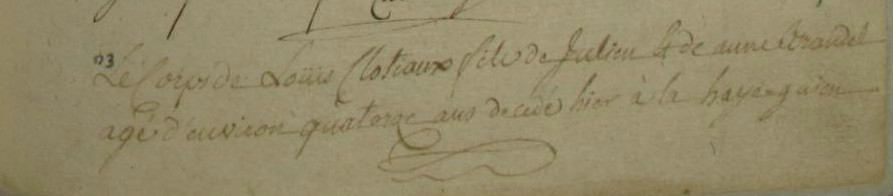 n3
Le Corps de Loüis Clotiaux fils de Julien & de anne
agé d'environ quatorze ans decedé hier à la haye